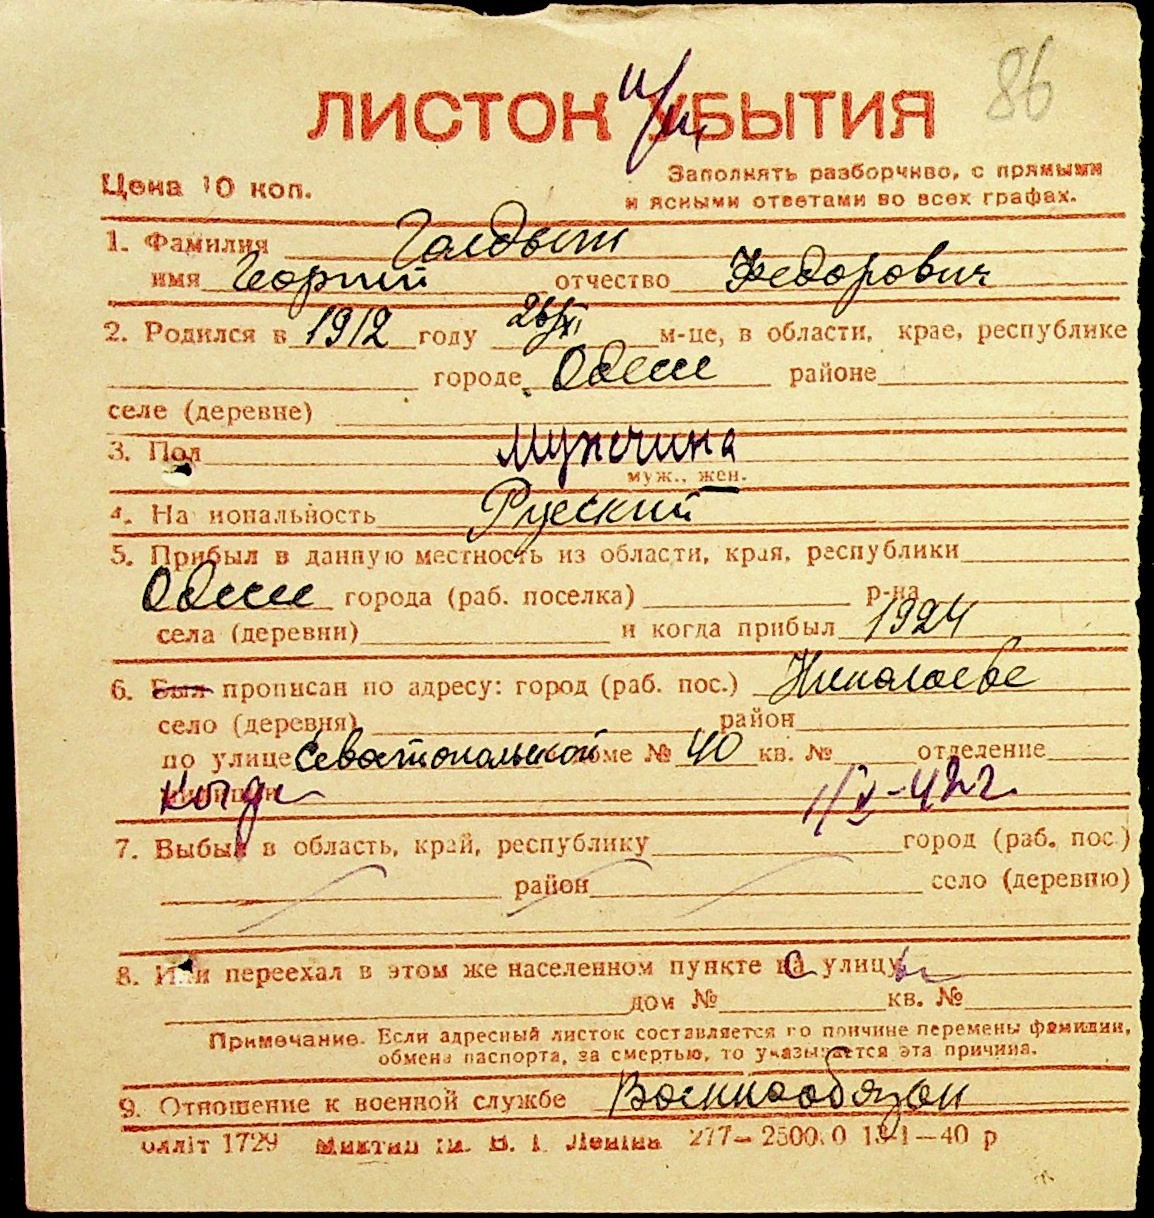 86
ЛИСТОК УБЫТИЯ
Цена 10 коп.
Заполнять разборчиво, с прямыми
и ясными ответами во всех графах.
1. Фамилия Голдыш
имя Георгий отчество Федорович
2. Родился в 1912 году 26/XI м-це, в области, крае, республике
городе Одессе районе
селе (деревне)
3. Пол Мужчина
муж., жен.
4. Национальность Русский
5. Прибыл в данную местность из области, края, республики
Одессе города (раб. поселка) р-на
села (деревни) и когда прибыл 1924
6. Был прописан по адресу: город (раб. пос.) Николаеве
село (деревня) район
по улице Севастопольской доме № 40 кв. № отделение
милиции Когда 1/IX-42 г.
7. Выбыл в область, край, республику город (раб. пос.)
район село (деревню)
8. Или переехал в этом же населенном пункте с улицы
дом № кв. №
Примечание. Если адресный листок составляется по причине перемены фамилии,
обмена паспорта, за смертью, то указывается эта причина.
9. Отношение к военной службе Военнообязан
Облліт 1729 Миктип ім. В. І. Леніна 277—2500.0 13-1—40 р